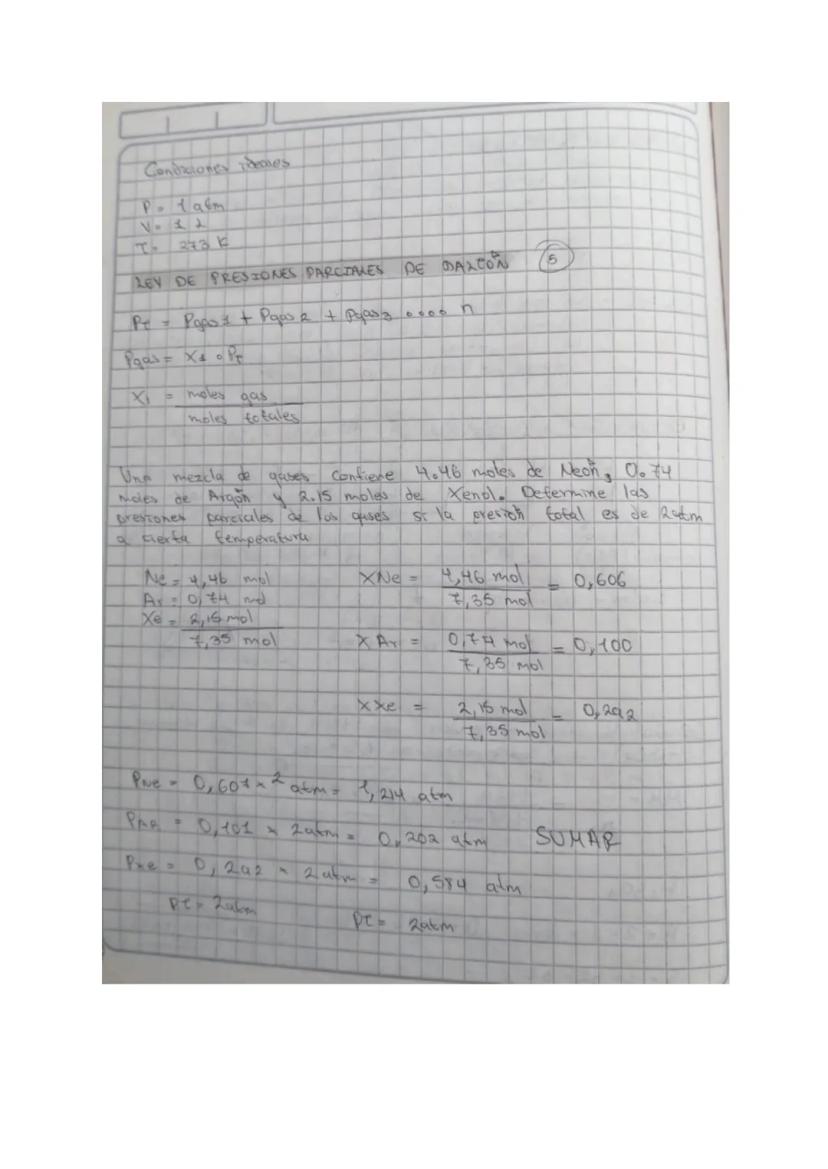 Condiciones ideales
P = 1 atm
V = 1 L
T = 273 K
LEY DE PRESIONES PARCIALES DE DALTÓN 5
Pt = Pgas 1 + Pgas 2 + Pgas 3 .... n
Pgas = X1 . PT
Xi = moles gas
moles totales
Una mezcla de gases contiene 4.46 moles de Neón, 0.74
moles de Argón y 2.15 moles de Xenol. Determine las
presiones parciales de los gases si la presión total es de 2atm
a cierta temperatura
Ne = 4,46 mol XNe = 4,46 mol = 0,606
Ar = 0,74 mol 7,35 mol
Xe = 2,15 mol
7,35 mol XAr = 0,74 mol = 0,100
7,35 mol
XXe = 2,15 mol = 0,292
7,35 mol
PNe = 0,607 x 2 atm = 1,214 atm
PAR = 0,101 x 2atm = 0,202 atm SUMAR
PXe = 0,292 x 2 atm = 0,584 atm
Pt = 2atm Pt = 2atm